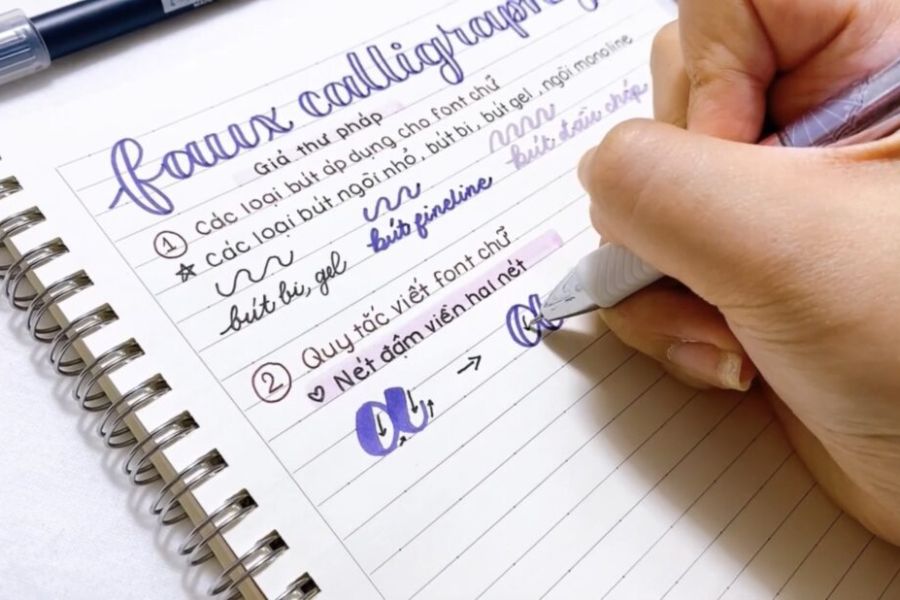 faux calligraphy
Giả thư pháp
① Các loại bút áp dụng cho font chữ
☆ Các loại bút ngòi nhỏ, bút bi, bút gel, ngòi monoline
bút bi, gel
bút fineline
bút dấu chép
② Quy tắc viết font chữ
♡ Nét đậm viền hai nét
a → a